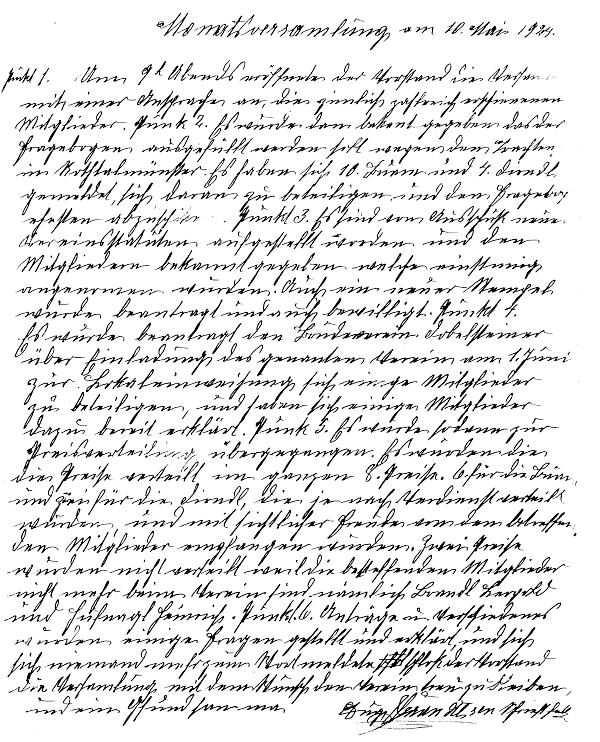 Monatsversamlung am 10. Mai 1924.
Punkt 1. Um 9h Abends eröffnete der Vorstand die Versam
mit einer Ansprache an, die zimlich zahlreich erschienenen
Mitglieder. Punk 2. Es wurde dan bekent gegeben das der
Fragebogen ausgefüllt werden soll wegen den Trachten
in Rotthalmünster. Es haben sich 10. Buam und 4. Dirndl
gemeldet sich daran zu beteiligen und den Fragebog
ehesten Punkt 3. Es sind vom Ausschuß neue
Vereinsstatuten aufgestellt worden und den
Mitgliedern bekannt gegeben welche einstimig
angenomen wurden. Auch ein neuer Stempel
wurde beantragt und auch bewilligt. Punkt 4.
Es wurde beantragt den Bruderverein
über Einladung des genanten Verein am 1. Juni
zur Lokaleinweihung sich einige Mitglieder
zu beteiligen, und haben sich einige Mitglieder
dazu bereit erklärt. Punk 5. Es wurde sodann zur
Preisverteilung übergegangen. Es wurden die
die Preise verteilt im ganzen 8. Preise. 6 für die Buam
und zwei für die Dirndl, die je nach Verdienst verteilt
wurden, und mit sichtlicher Freude von dem betreffen
den Mitglieder empfangen wurden. Zwei Preise
wurden nicht verteilt weil die betreffenden Mitglieder
nicht mehr beim Verein sind nämlich Brandl Leopold
und Hufnagl Heinrich. Punkt 6. Anträge u. Verschiedenes
wurden einige Fragen gestellt und erklärt und sich
sich niemand mehr zum Wort meldete schloß der Vorstand
die Versamlung, mit dem Wunsch den Verein treu zu bleiben,
und ein